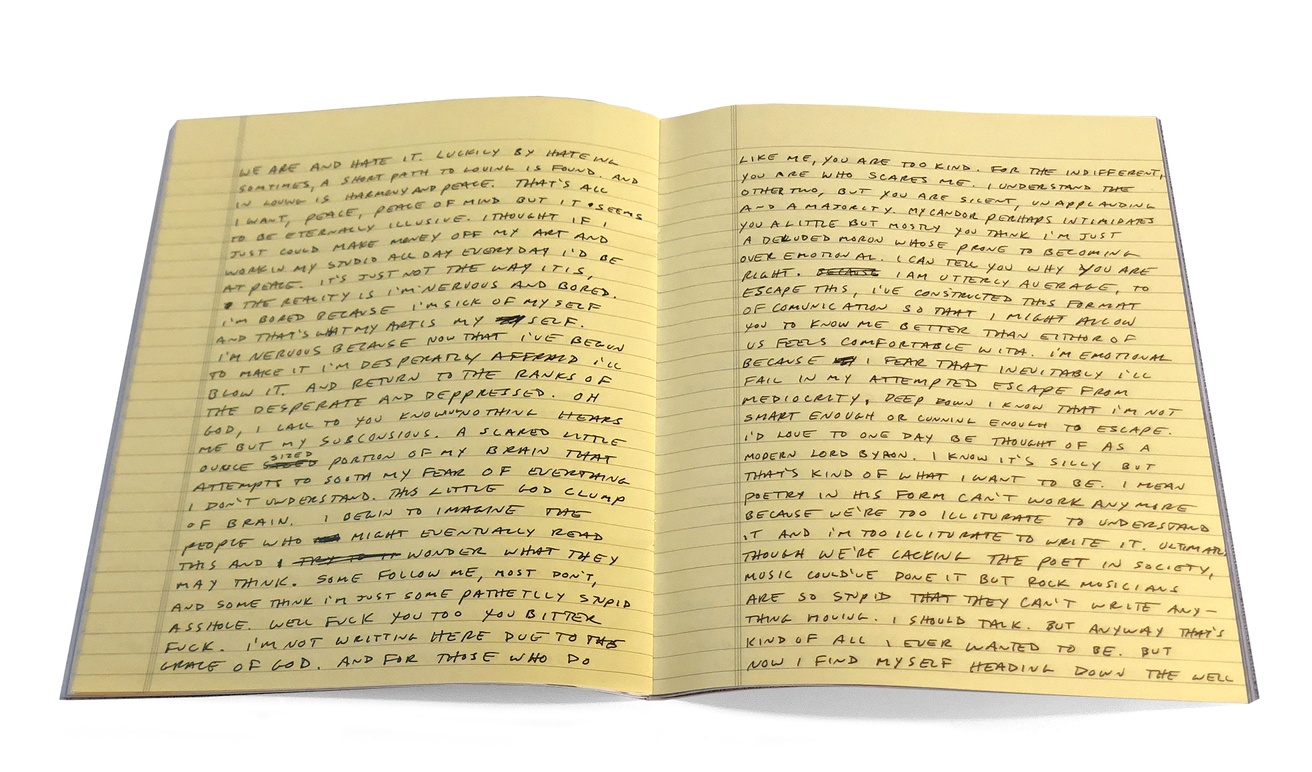 WE ARE AND HATE IT. LUCKILY BY HATEING
SOMTIMES, A SHORT PATH TO LOVING IS FOUND. AND
IN LOVING IS HARMONY AND PEACE. THAT'S ALL
I WANT, PEACE, PEACE OF MIND BUT IT SEEMS
TO BE ETERNALLY ILLUSIVE. I THOUGHT IF I
JUST COULD MAKE MONEY OFF MY ART AND
WORK IN MY STUDIO ALL DAY EVERYDAY I'D BE
AT PEACE. IT'S JUST NOT THE WAY IT IS,
THE REALITY IS I'M NERVOUS AND BORED.
I'M BORED BECAUSE I'M SICK OF MY SELF
AND THAT'S WHAT MY ART IS MY SELF.
I'M NERVOUS BECAUSE NOW THAT I'VE BEGUN
TO MAKE IT I'M DESPERATLY AFFRAID I'LL
BLOW IT. AND RETURN TO THE RANKS OF
THE DESPERATE AND DEPPRESSED. OH
GOD, I CALL TO YOU KNOWING NOTHING HEARS
ME BUT MY SUBCONSIOUS. A SCARED LITTLE
OUNCE SIZED PORTION OF MY BRAIN THAT
ATTEMPTS TO SOOTH MY FEAR OF EVERYTHING
I DON'T UNDERSTAND. THIS LITTLE GOD CLUMP
OF BRAIN. I BEGIN TO IMAGINE THE
PEOPLE WHO MIGHT EVENTUALLY READ
THIS AND I TRY TO IT WONDER WHAT THEY
MAY THINK. SOME FOLLOW ME, MOST DON'T,
AND SOME THINK I'M JUST SOME PATHETLLY STUPID
ASSHOLE. WELL FUCK YOU TOO YOU BITTER
FUCK. I'M NOT WRITTING HERE DUE TO THE
GRACE OF GOD. AND FOR THOSE WHO DO
LIKE ME, YOU ARE TOO KIND. FOR THE INDIFFERENT,
YOU ARE WHO SCARES ME. I UNDERSTAND THE
OTHER TWO, BUT YOU ARE SILENT, UNAPPLAUDING
AND A MAJORITY. MY CANDOR PERHAPS INTIMIDATES
YOU A LITTLE BUT MOSTLY YOU THINK I'M JUST
A DELUDED MORON WHOSE PRONE TO BECOMING
OVER EMOTIONAL. I CAN TELL YOU WHY YOU ARE
RIGHT. BECAUSE I AM UTTERLY AVERAGE, TO
ESCAPE THIS, I'VE CONSTRUCTED THIS FORMAT
OF COMUNICATION SO THAT I MIGHT ALLOW
YOU TO KNOW ME BETTER THAN EITHOR OF
US FEELS COMFORTABLE WITH. I'M EMOTIONAL
BECAUSE I FEAR THAT INEVITABLY I'LL
FAIL IN MY ATTEMPTED ESCAPE FROM
MEDIOCRITY, DEEP DOWN I KNOW THAT I'M NOT
SMART ENOUGH OR CUNNING ENOUGH TO ESCAPE.
I'D LOVE TO ONE DAY BE THOUGHT OF AS A
MODERN LORD BYRON. I KNOW IT'S SILLY BUT
THAT'S KIND OF WHAT I WANT TO BE. I MEAN
POETRY IN HIS FORM CAN'T WORK ANYMORE
BECAUSE WE'RE TOO ILLITURATE TO UNDERSTAND
IT AND I'M TOO ILLITURATE TO WRITE IT.
THOUGH WE'RE LACKING THE POET IN SOCIETY,
MUSIC COULD'VE DONE IT BUT ROCK MUSICIANS
ARE SO STUPID THAT THEY CAN'T WRITE ANY-
THING MOVING. I SHOULD TALK. BUT ANYWAY THAT'S
KIND OF ALL I EVER WANTED TO BE. BUT
NOW I FIND MYSELF HEADING DOWN THE WELL